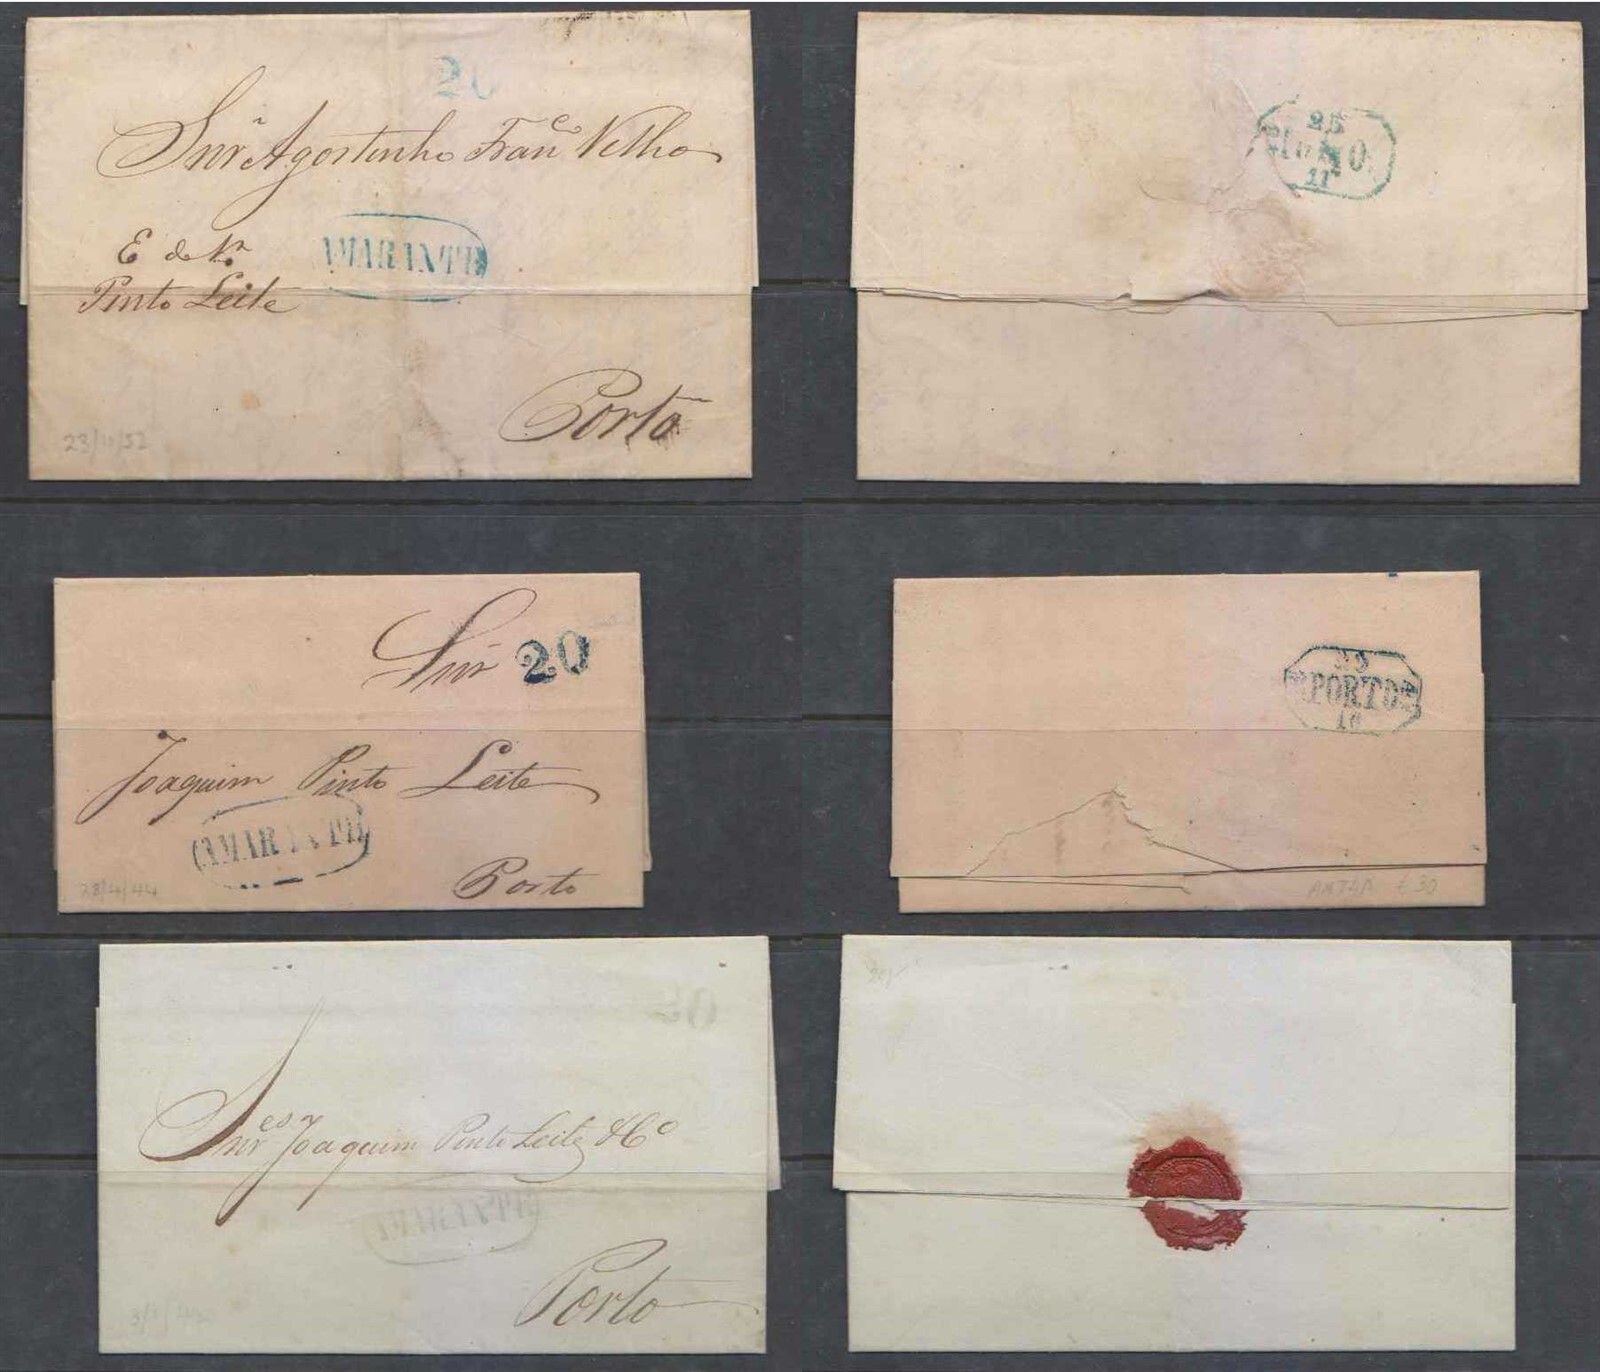 20
Snr Agostinho Franco Velho
E de Nr
Pinto Leite
AMARANTE
Porto
23/10/52
25
PORTO
11
Snr 20
Joaquim Pinto Leite
AMARANTE
Porto
28/4/44
PORTO
AM74A £30
20
Snres Joaquim Pinto Leite & Co
AMARANTE
Porto